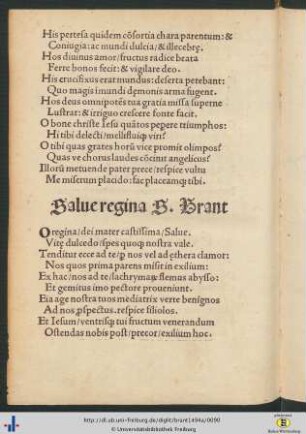 His pertesa quidem cōsortia chara parentum: &
Coniugia: ac mundi dulcia/ & illecebrę.
Hos diuinus amor/ fructus radice beata
Ferre bonos fecit: & vigilare deo.
His crucifixus erat mundus: deserta petebant:
Quo magis imundi dęmonis arma fugent.
Hos deus omnipotēs tua gratia missa superne
Lustrat: & irriguo crescere fonte facit.
O bone christe Iesu quātos pepere triumphos:
Hi tibi delecti/ mellifluiq; viri?
O tibi quas grates horū vice promit olimpos?
Quas ve chorus laudes cōcinit angelicus?
Illorū metuende pater prece/ respice vultu
Me miserum placido: fac placeamq; tibi.
Salue regina S. Brant
O regina/ dei mater castissima/ Salue.
Vitę dulcedo/ spes quoq; nostra vale.
Tenditur ecce ad te/ p nos vel ad ęthera clamor:
Nos quos prima parens misit in exilium:
Ex hac/ nos ad te/ lachrymaq; flemus abysso:
Et gemitus imo pectore proueniunt.
Eia age nostra tuos mediatrix verte benignos
Ad nos pspectus. respice filiolos.
Et Iesum/ ventrisq; tui fructum venerandum
Ostendas nobis post/ precor/ exilium hoc.
http://dl.ub.uni-freiburg.de/diglit/brant1494a/0090
© Universitätsbibliothek Freiburg